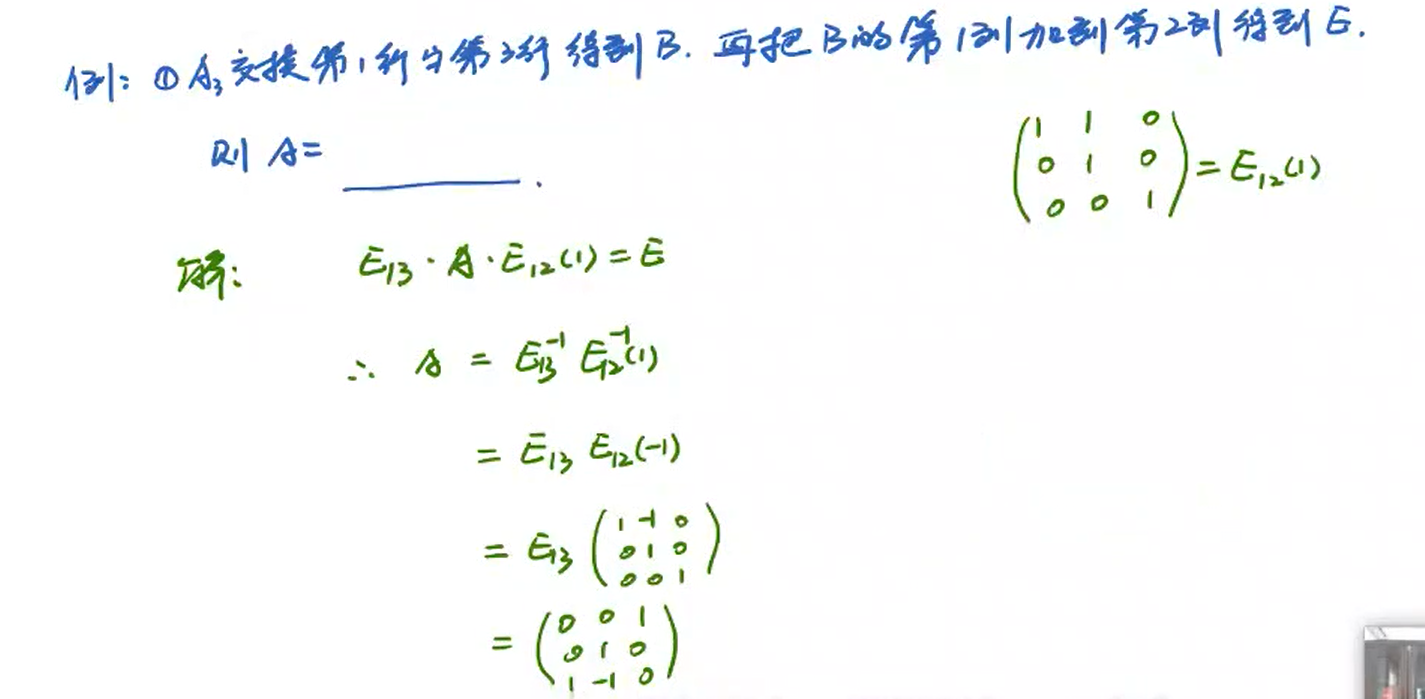 例: ① A₃交换第1行与第3行得到B. 再把B的第1列加到第2列得到E.
则 A= ______.
(1 1 0
0 1 0
0 0 1) = E₁₂(1)
解: E₁₃ · A · E₁₂(1) = E
∴ A = E₁₃⁻¹ E₁₂⁻¹(1)
= E₁₃ E₁₂(-1)
= E₁₃ (1 -1 0
0 1 0
0 0 1)
= (0 0 1
0 1 0
1 -1 0)